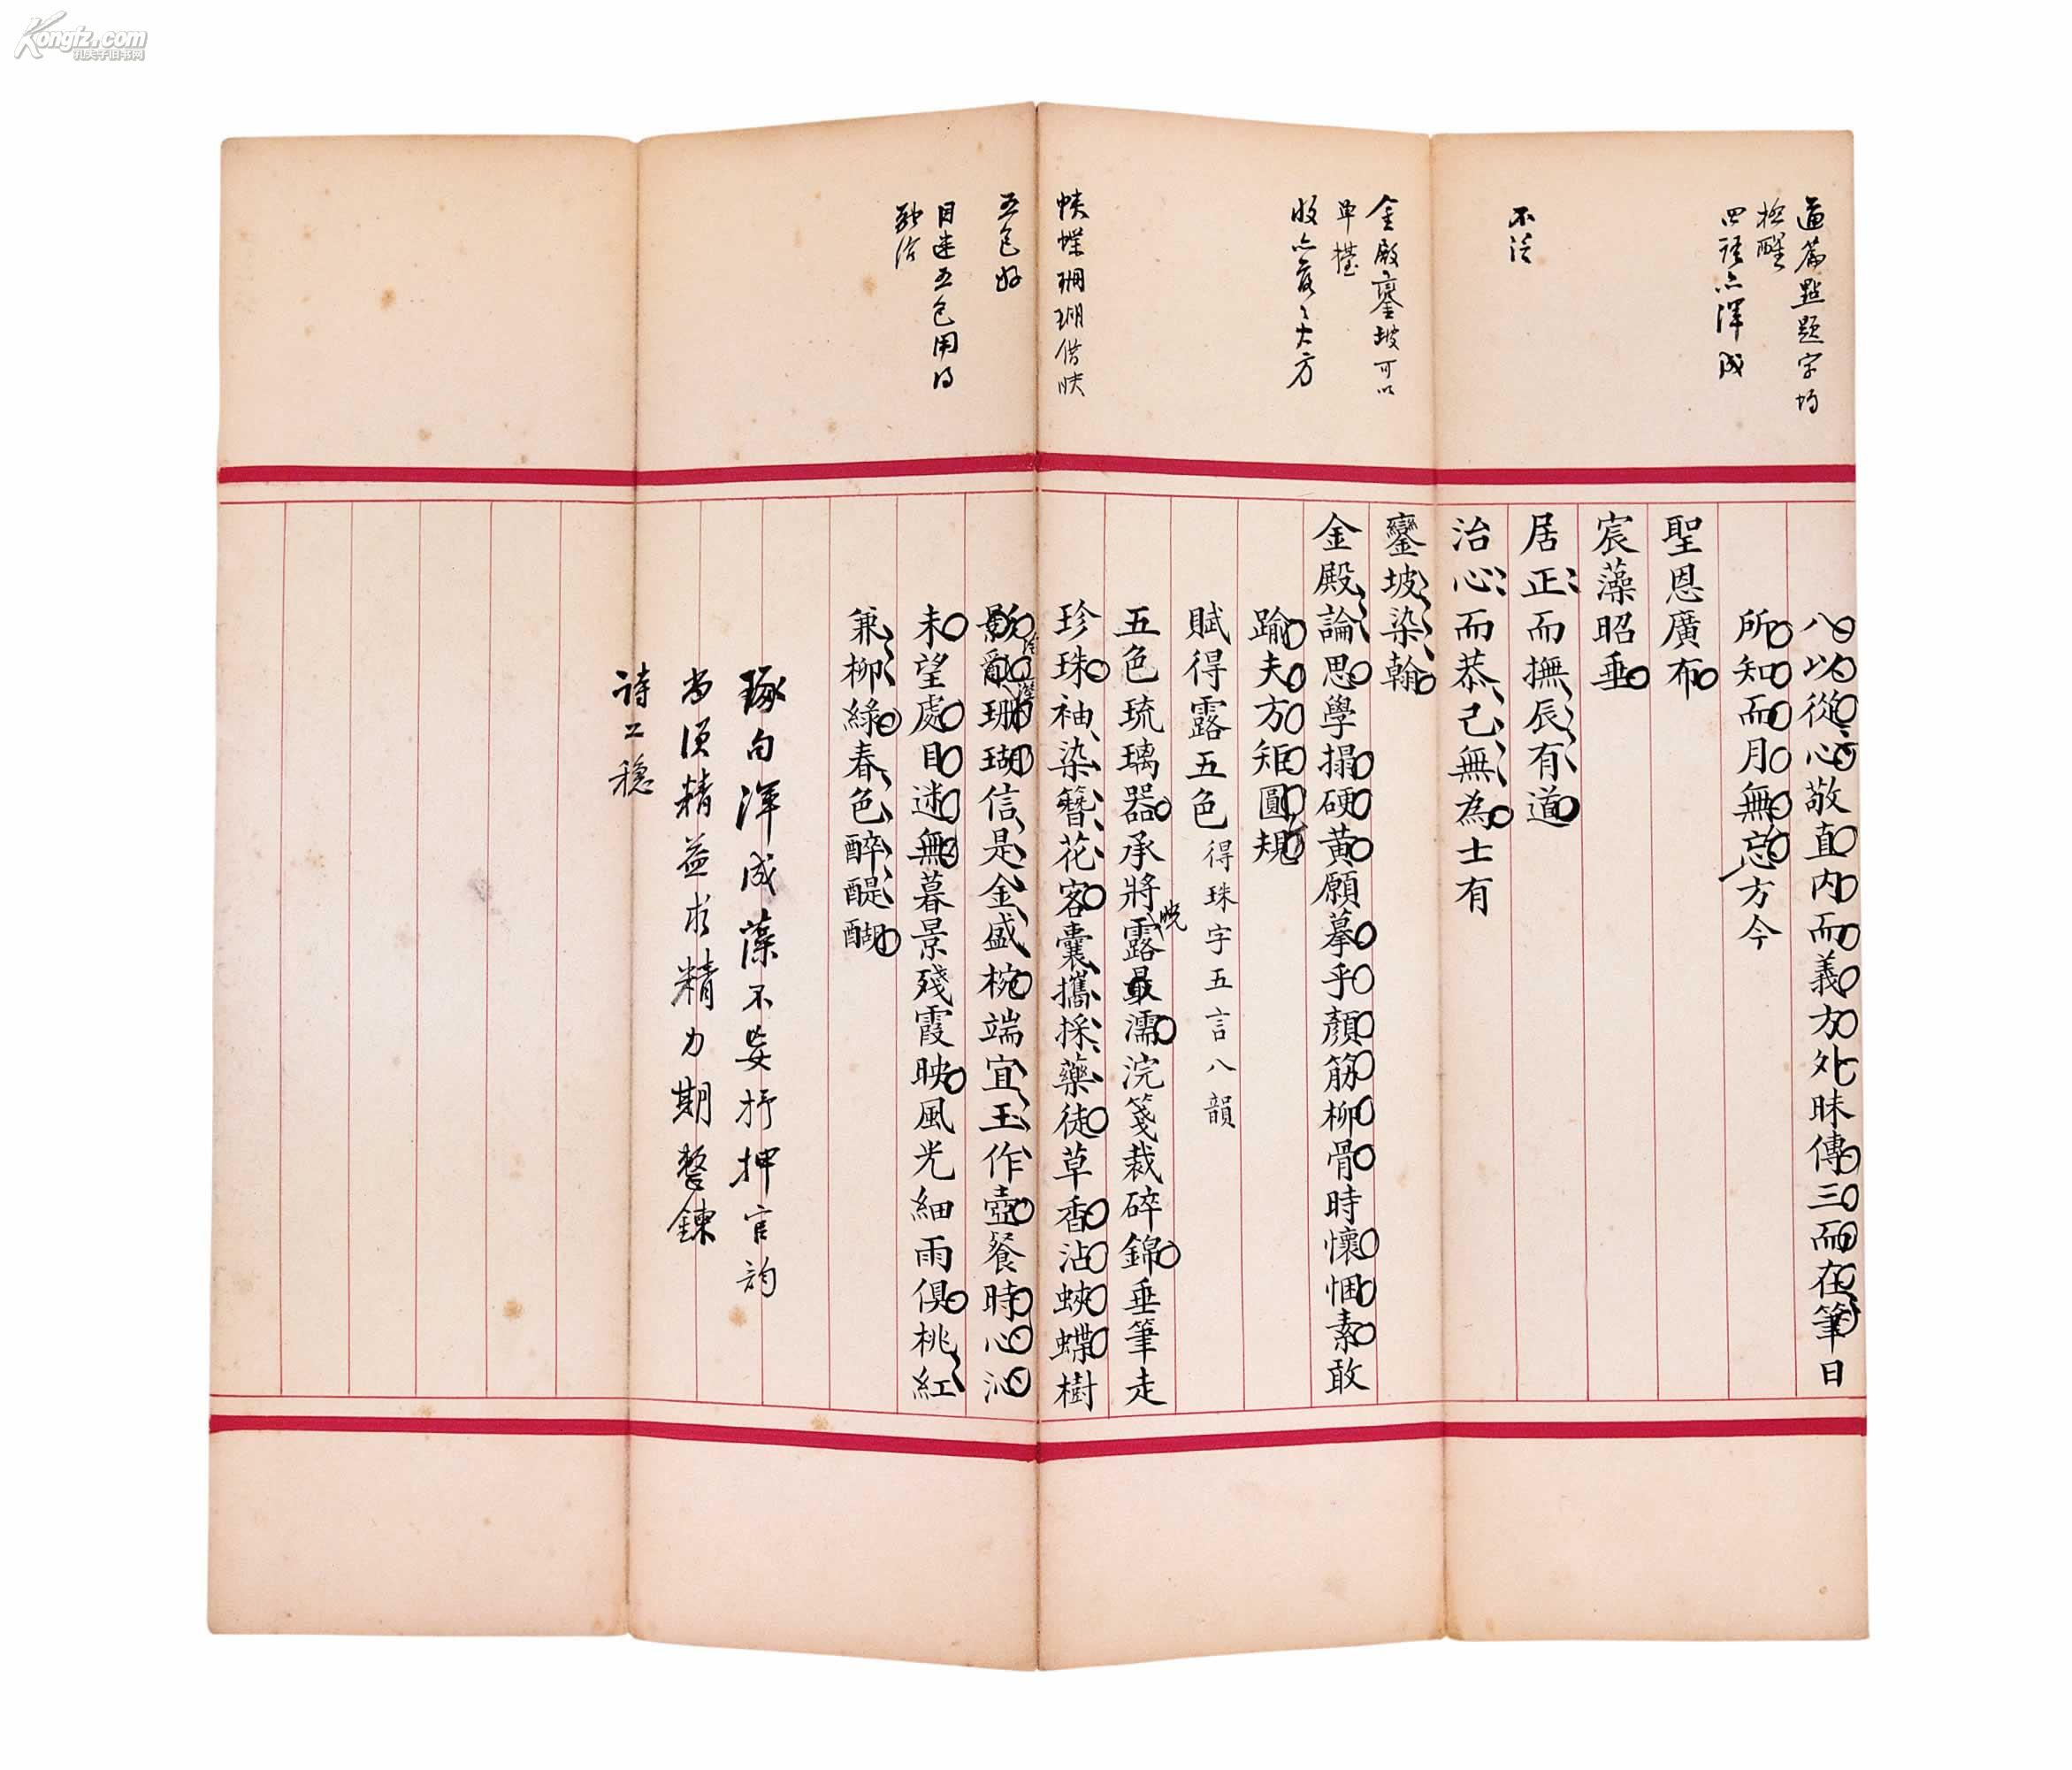 Kongfz.com
孔夫子旧书网
通篇點題字均
極醒
四語亦渾成
不泛
金殿鑾坡可以
單擡
收亦落落大方
蛺蝶珊瑚借映
五色好
目迷五色用得
融洽
八以從心敬直內而義方外昧傳三而在筆日
所知而月無忘方今
聖恩廣布
宸藻昭垂
居正而撫辰有道
治心而恭己無為士有
鑾坡染翰
金殿論思學搨硬黃願摹乎顏筋柳骨時懷悃素敢
踰夫方矩圓規
賦得露五色得珠字五言八韻
五色琉璃器承將露最濡浣箋裁碎錦垂筆走
曉
珍珠袖染簪花客囊攜採藥徒草香沾蛺蝶樹
影亂珊瑚信是金盛椀端宜玉作壺餐時心沁
未望處目迷無暮景殘霞映風光細雨俱桃紅
兼柳綠春色醉醍醐
琢句渾成藻不妄抒押官韵
尚須精益求精力期整鍊
詩工穩